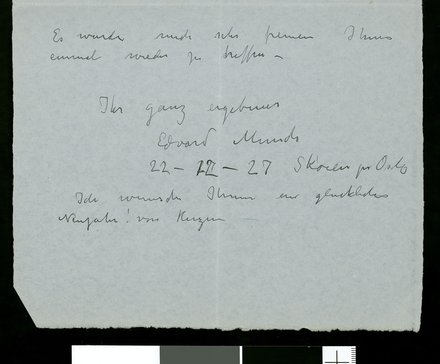 Es würde mich sehr freuen Ihnen
einmal wieder zu treffen –
Ihr ganz ergebener
Edvard Munch
22 – III – 27 Skøien pr Oslo
Ich wünsche Ihnen ein glückliches
Neujahr! von Herzen